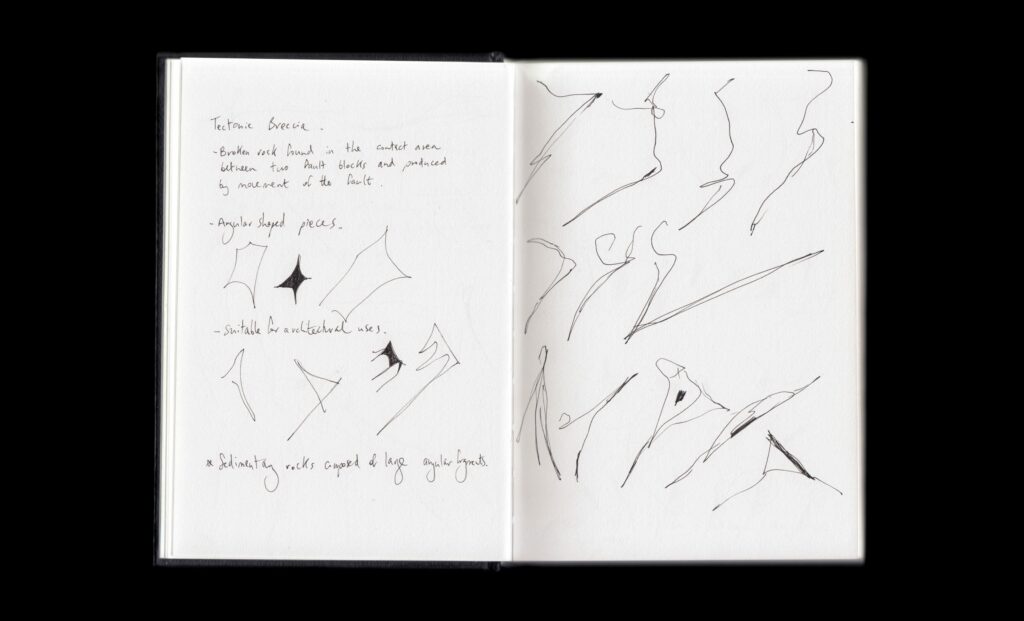 Tectonic Breccia.
- Broken rock found in the contact area
between two fault blocks and produced
by movement of the fault.
- Angular shaped pieces.
- suitable for architectural uses.
* Sedimentary rocks composed of large angular fragments.